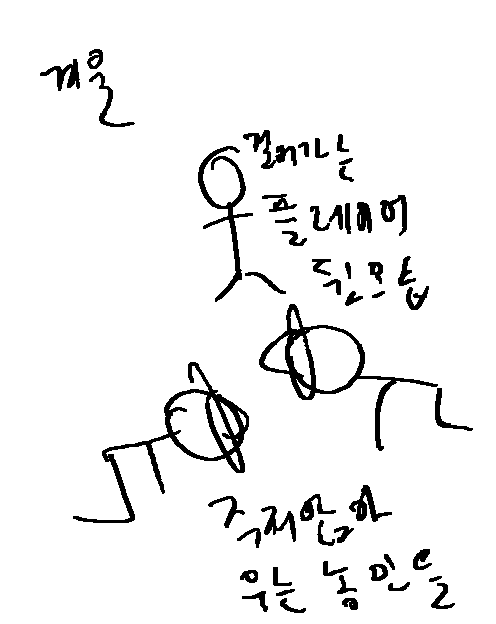 겨울
걸어가는
플레이어
뒷모습
주저앉아
우는 농민들